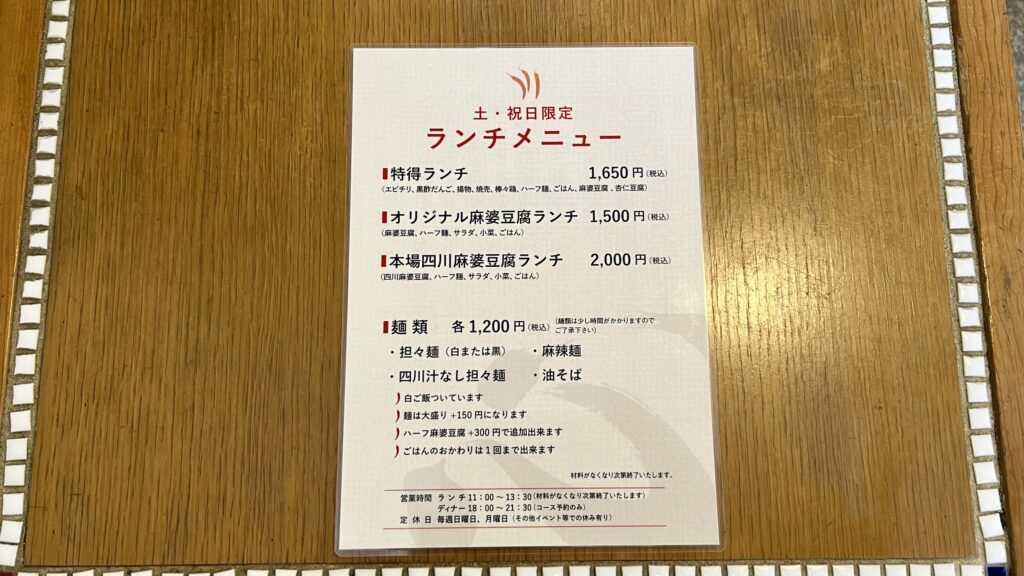 土・祝日限定
ランチメニュー
特得ランチ 1,650円(税込)
(エビチリ、黒酢だんご、揚物、焼売、棒々鶏、ハーフ麺、ごはん、麻婆豆腐、杏仁豆腐)
オリジナル麻婆豆腐ランチ 1,500円(税込)
(麻婆豆腐、ハーフ麺、サラダ、小菜、ごはん)
本場四川麻婆豆腐ランチ 2,000円(税込)
(四川麻婆豆腐、ハーフ麺、サラダ、小菜、ごはん)
麺類 各1,200円(税込) (麺類は少し時間がかかりますので
ご了承下さい)
・担々麺(白または黒) ・麻辣麺
・四川汁なし担々麺 ・油そば
白ご飯ついています
麺は大盛り+150円になります
ハーフ麻婆豆腐+300円で追加出来ます
ごはんのおかわりは1回まで出来ます
材料がなくなり次第終了いたします。
営業時間 ランチ11:00〜13:30(材料がなくなり次第終了いたします)
ディナー18:00〜21:30(コース予約のみ)
定休日 毎週日曜日、月曜日(その他イベント等での休み有り)